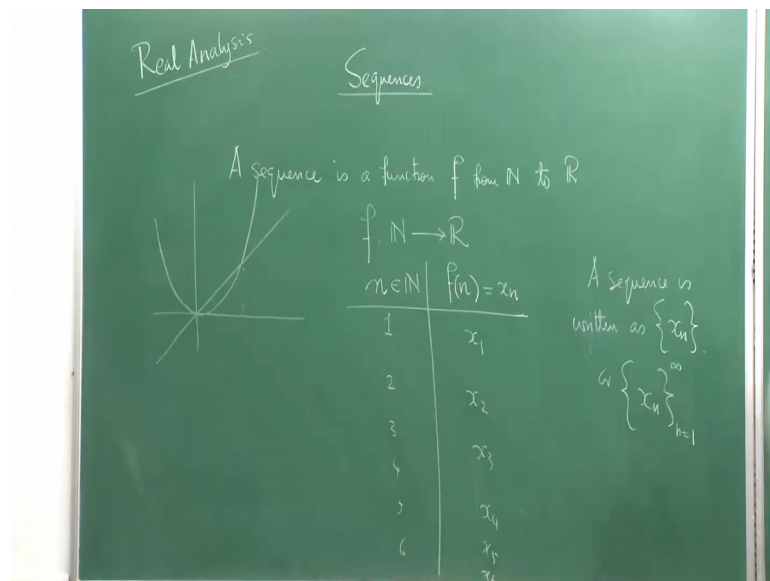 Real Analysis.
Sequences
A sequence is a function f from ℕ to ℝ
f. ℕ → ℝ
n ∈ ℕ | f(n) = xₙ
1 x₁
2 x₂
3 x₃
4 x₄
5 x₅
6 x₆
A sequence is
written as {xₙ}.
or {xₙ}^∞_{n=1}